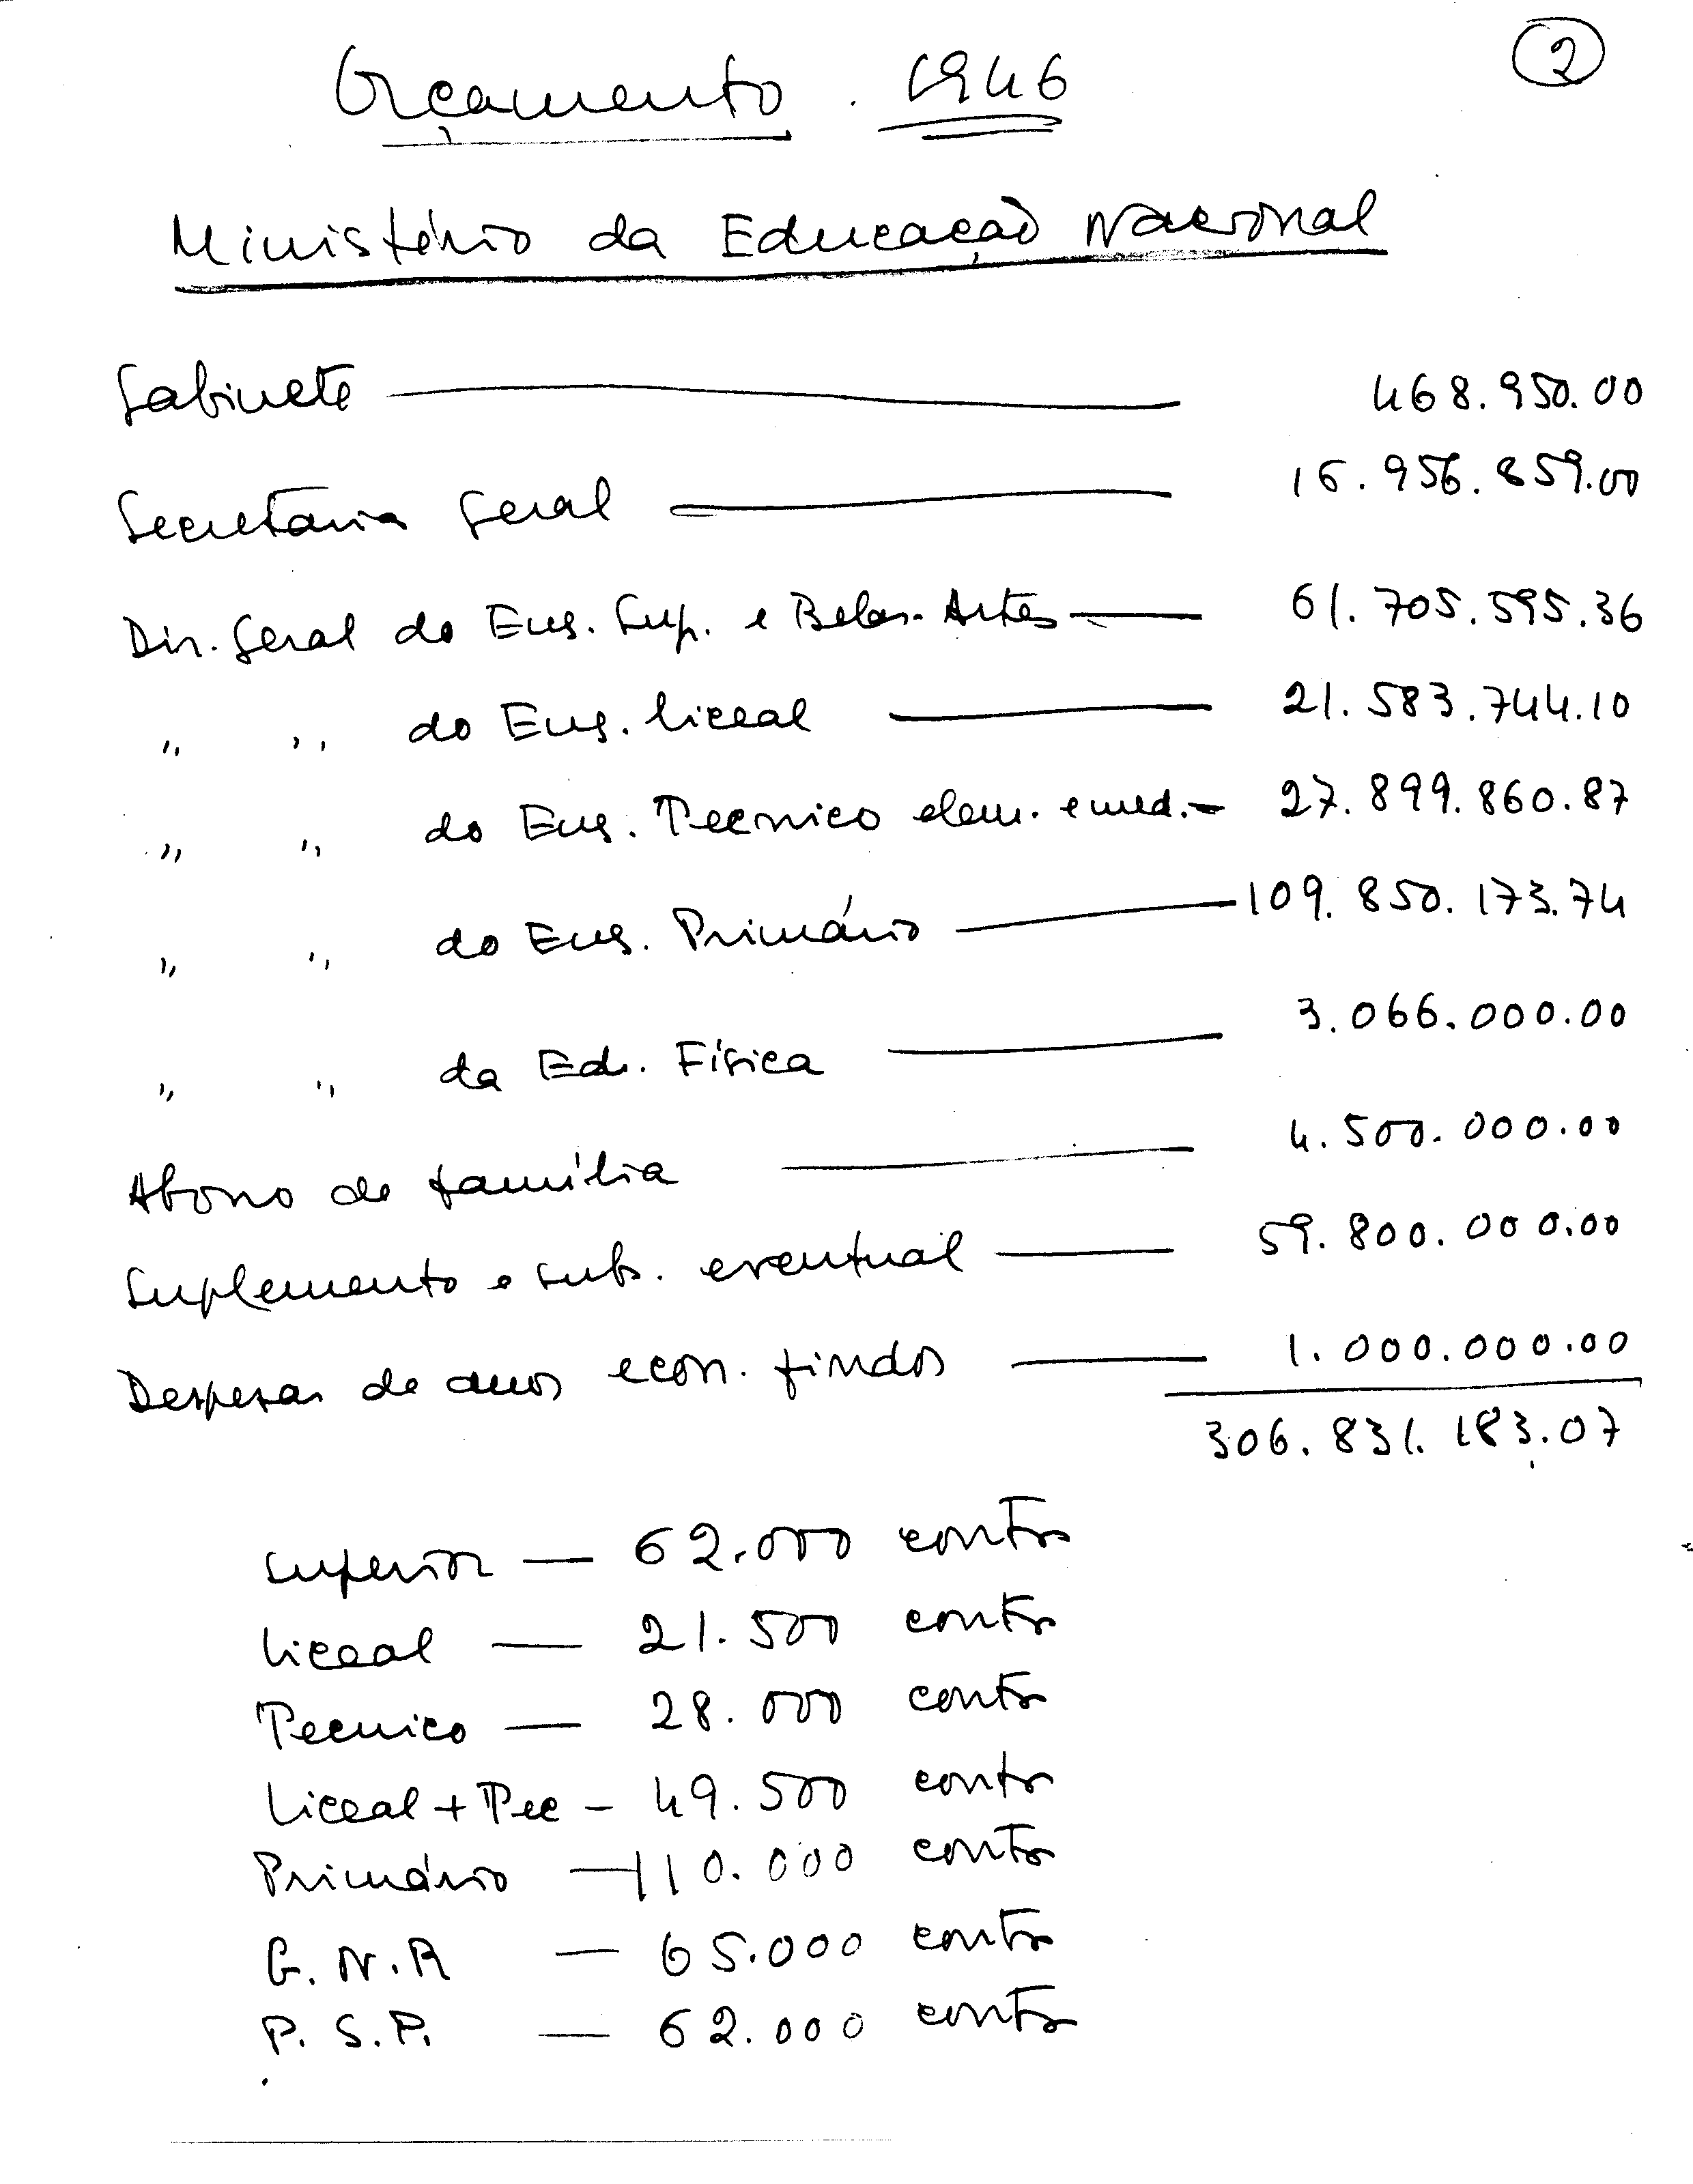 2
Orçamento. 1946
Ministério da Educação Nacional
Gabinete — 468.950.00
Secretaria Geral — 16.956.859.00
Dir. Geral do Ens. Sup. e Belas-Artes — 61.705.595.36
" " do Ens. liceal — 21.583.744.10
" " do Ens. Tecnico elem. e med. — 27.899.860.87
" " do Ens. Primário — 109.850.173.74
" " da Ed. Física — 3.066.000.00
Abono de família — 4.500.000.00
Suplemento e sub. eventual — 59.800.000.00
Despesas de anos econ. findos — 1.000.000.00
306.831.183.07
Superior — 62.000 contos
liceal — 21.500 contos
Tecnico — 28.000 contos
Liceal + Tec — 49.500 contos
Primário — 110.000 contos
G.N.R — 65.000 contos
P.S.P. — 62.000 contos